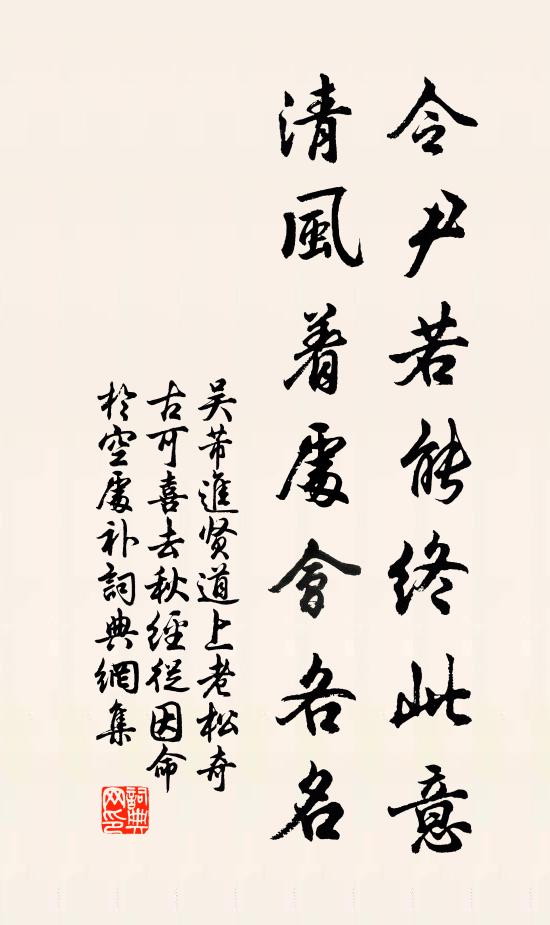 令尹若能終此意
清風着處會各名
吴芾進贤道上老松奇
古可喜去秋經從因命
於空處补詞典網集
詞典
网印